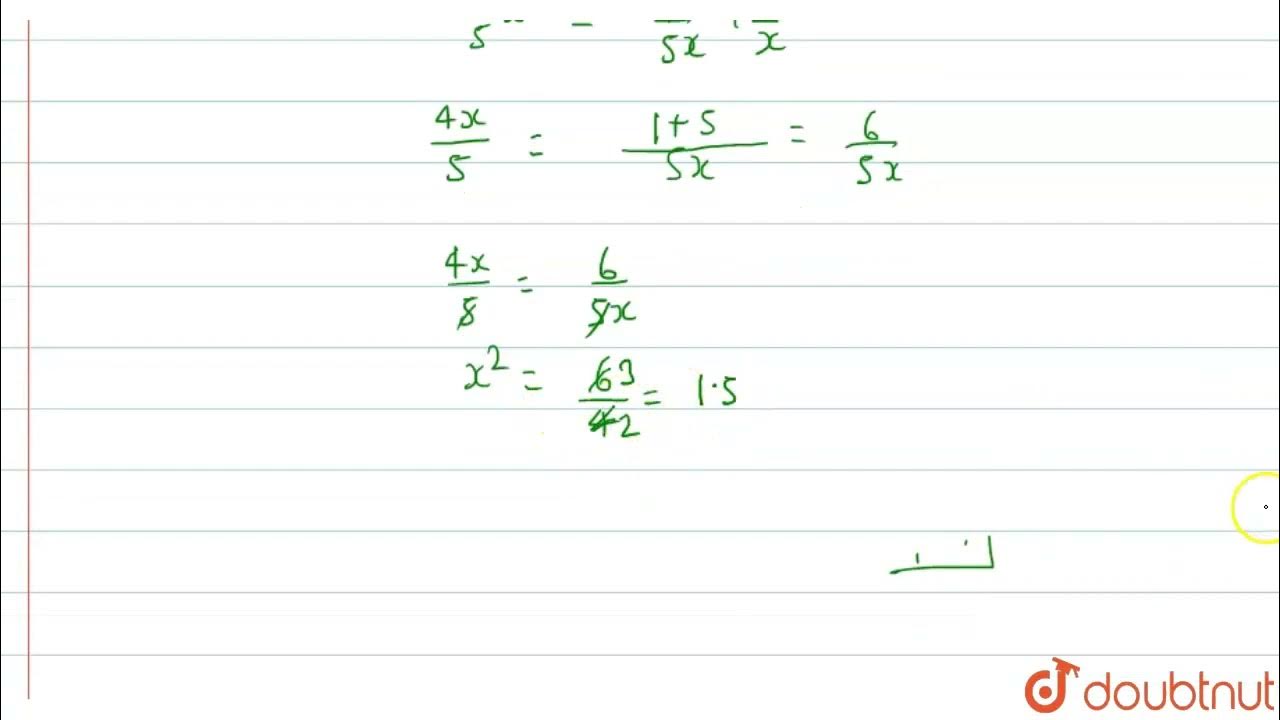 5 = 5x x
4x/5 = 1+5/5x = 6/5x
4x/5 = 6/5x
x² = 63/42 = 1.5
doubtnut